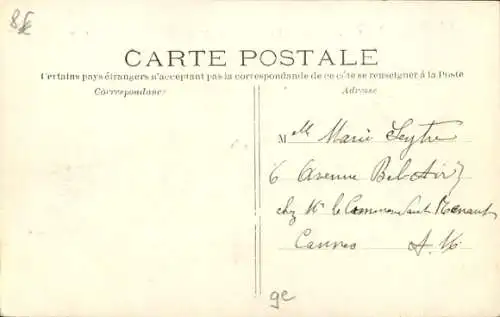 85
CARTE POSTALE
Certains pays étrangers n'acceptant pas la correspondande de ce côté se renseigner à la Poste
Correspondance
Adresse
Melle Marie Seytre
6 Avenue Bel-Air
chez Mr le Commandant Renault
Cannes A. M.
9e